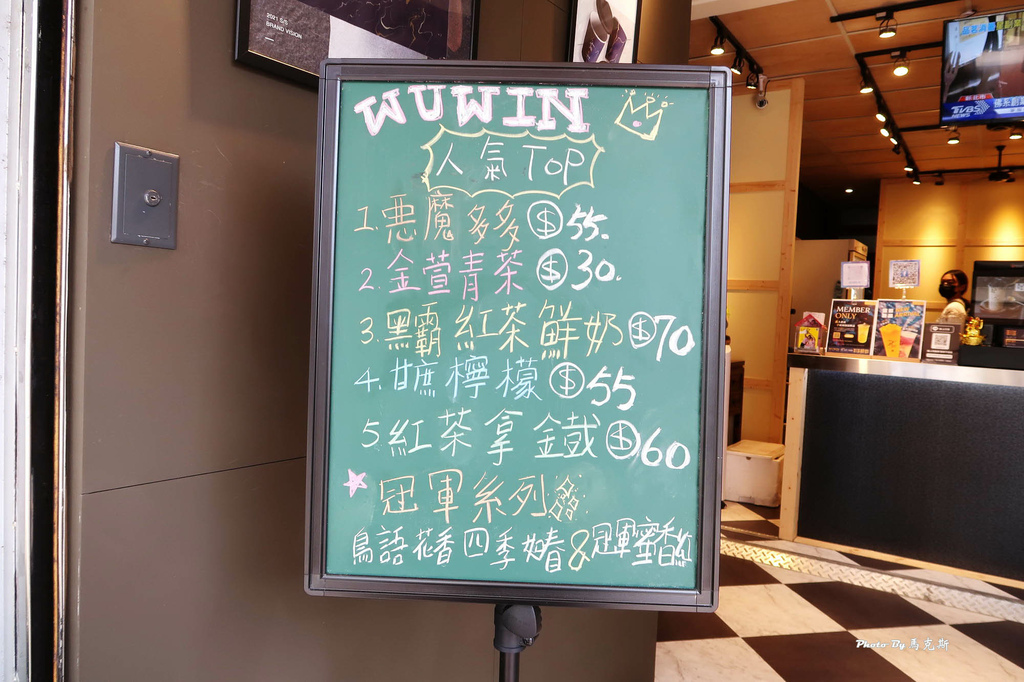 2021 S/S
BRAND VISION
WUWIN
人氣 TOP
1. 悪魔多多 $55.
2. 金萱青茶 $30.
3. 黑霸紅茶鮮奶 $70
4. 甘蔗檸檬 $55
5 紅茶拿鐵 $60
冠軍系列
鳥語花香四季如春&冠軍蜜香紅
TVBS
NEWS
MEMBER
ONLY
Photo By 馬克斯